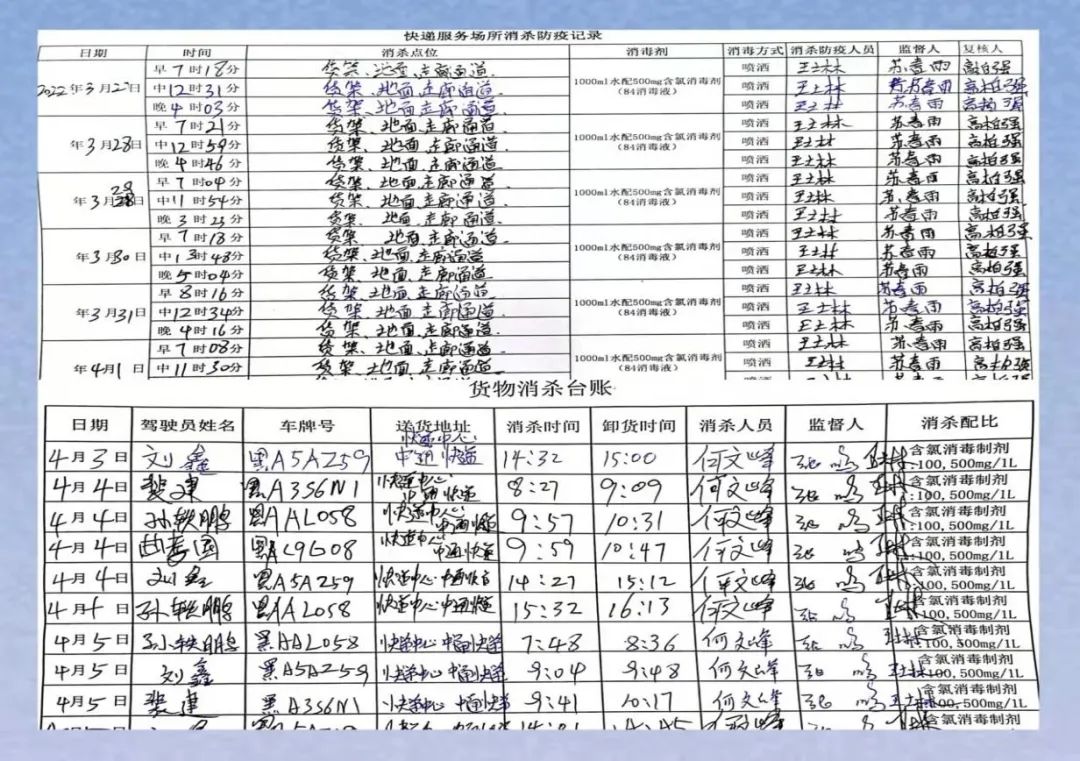 快递服务场所消杀防疫记录
日期 时间 消杀点位 消毒剂 消毒方式 消杀防疫人员 监督人 复核人
2022年3月27日 早7时18分 货架、地面、走廊通道 1000ml水配500mg含氯消毒剂(84消毒液) 喷洒 王士林 苏春雨 高柏强
中12时31分 货架、地面、走廊通道 喷洒 王士林 苏春雨 高柏强
晚4时03分 货架、地面、走廊通道 喷洒 王士林 苏春雨 高柏强
年3月28日 早7时21分 货架、地面、走廊通道 1000ml水配500mg含氯消毒剂(84消毒液) 喷洒 王士林 苏春雨 高柏强
中12时59分 货架、地面、走廊通道. 喷洒 王士林 苏春雨 高柏强
晚4时46分 货架、地面、走廊通道. 喷洒 王士林 苏春雨 高柏强
年3月29日 早7时04分 货架、地面、走廊通道. 1000ml水配500mg含氯消毒剂(84消毒液) 喷洒 王士林 苏春雨 高柏强
中11时54分 货架、地面、走廊通道. 喷洒 王士林 苏春雨 高柏强
晚3时23分 货架、地面、走廊通道. 喷洒 王士林 苏春雨 高柏强
年3月30日 早7时18分 货架、地面、走廊通道. 1000ml水配500mg含氯消毒剂(84消毒液) 喷洒 王士林 苏春雨 高柏强
中1时48分 货架、地面、走廊通道 喷洒 王士林 苏春雨 高柏强
晚5时04分 货架、地面、走廊通道 喷洒 王士林 苏春雨 高柏强
年3月31日 早8时16分 货架、地面、走廊通道 1000ml水配500mg含氯消毒剂(84消毒液) 喷洒 王士林 苏春雨 高柏强
中12时34分 货架、地面、走廊通道. 喷洒 王士林 苏春雨 高柏强
晚4时16分 货架、地面、走廊通道. 喷洒 王士林 苏春雨 高柏强
年4月1日 早7时08分 货架、地面、走廊通道. 1000ml水配500mg含氯消毒剂(84消毒液) 喷洒 王士林 苏春雨 高柏强
中11时30分 货架、地面、走廊通道. 喷洒 王士林 苏春雨 高柏强
货物消杀台账
日期 驾驶员姓名 车牌号 送货地址 消杀时间 卸货时间 消杀人员 监督人 消杀配比
4月3日 刘鑫 黑A5AZ59 快递中心中通快递 14:32 15:00 何文峰 含氯消毒制剂1:100,500mg/1L
4月4日 裴建 黑A3S6N1 快递中心中通快递 8:27 9:09 何文峰 含氯消毒制剂1:100,500mg/1L
4月4日 孙轶鹏 黑AAL058 快递中心中通快递 9:57 10:31 何文峰 含氯消毒制剂1:100,500mg/1L
4月4日 快递中心中通快递 9:59 10:47 何文峰 含氯消毒制剂1:100,500mg/1L
4月4日 刘鑫 黑A5AZ59 快递中心中通快递 14:27 15:12 何文峰 含氯消毒制剂1:100,500mg/1L
孙轶鹏 黑AAL058 快递中心中通快递 15:32 16:13 何文峰 含氯消毒制剂1:100,500mg/1L
4月5日 孙轶鹏 黑AAL058 快递中心中通快递 7:48 8:36 何文峰 含氯消毒制剂1:100,500mg/1L
4月5日 刘鑫 黑A5AZ59 快递中心中通快递 9:04 9:48 何文峰 含氯消毒制剂1:100,500mg/1L
4月5日 裴建 黑A3S6N1 快递中心中通快递 9:41 10:17 何文峰 含氯消毒制剂1:100,500mg/1L
含氯消毒制剂